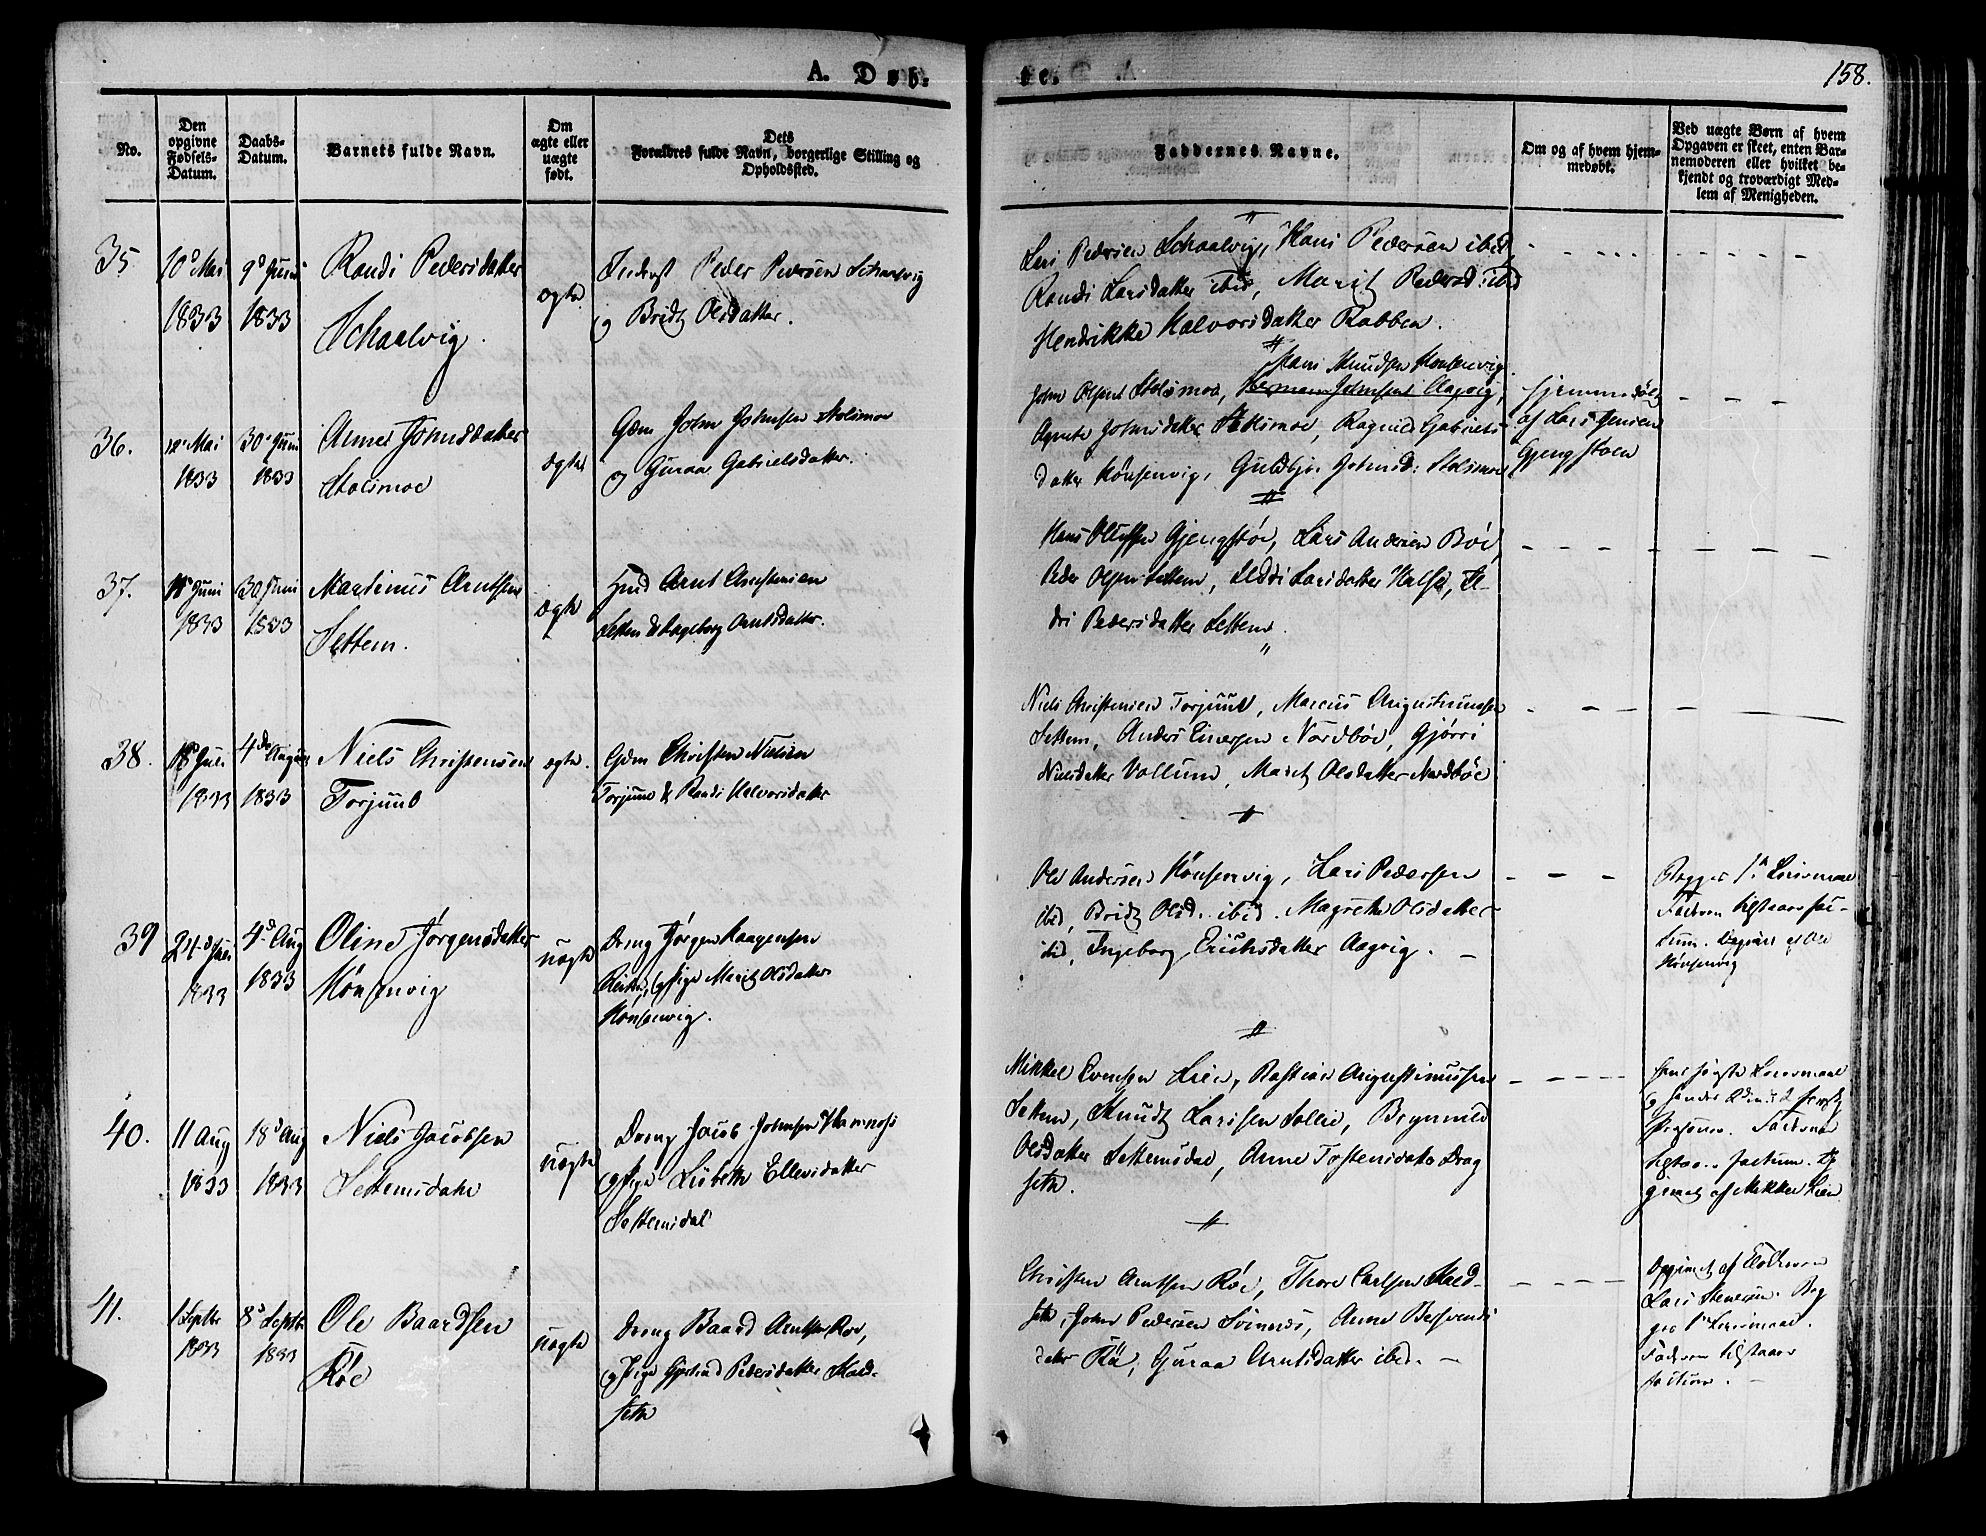 A. Døb-
te.
158.
No.
Den
opgivne
Fødsels-
Datum.
Daabs-
Datum.
Barnets fulde Navn.
Om
ægte eller
uægte
født.
Dets
Forældres fulde Navn, borgerlige Stilling og
Opholdssted.
Faddernes Navne.
Om og af hvem hjem-
medøbt.
Ved uægte Børn af hvem
Opgaven er skeet, enten Bar-
nemoderen eller hvilket be-
kjendt og troværdigt Med-
lem af Menigheden.
35
10d Mai
1833
9d Juni
1833
Randi Pedersdatter
Schaalvig.
ægte
Inderst Peder Pedersen Schaalvig
og Bridt Olsdatter.
Lars Pedersen Schaalvig, Hans Pedersen ibid
Randi Larsdatter ibid, Marit Pedersd: ibid
Henrikke Halvorsdatter Rabben.
36.
12 Mai
1833
30d Juni
1833
Anne Johnsdatter
Stolsmoe
ægte
Gdm John Johnsen Stolsmoe
og Guraa Gabrielsdatter.
Hans Knudsen Hønsenvig
John Olsen Stolsmoe, Herman Johnsen Aagvig,
Agnete Johnsdatter Stolsmoe, Ragnild Gabriels
datter Hønsenvig, Guldbjør Johnsd: Stolsmoe
hjemmedøbt
af Lars Jensen
Gjengstøen
37.
Juni
1833
30 Juni
1833
Martinus Arntsen
Settem.
ægte
Hmd Arnt Christensen
Settem & Ingeborg Arntsdatter.
Hans Olufsen Gjengstøe, Lars Andersen Bøe
Peder Olsen Settem, Larsdatter Halse,
Pedersdatter Settem.
38.
18 Juli
1833
4de August
1833
Niels Christensen
Torjuul
ægte.
Gdm Christen Nielsen
Torjuul & Randi Halvorsdatter
Niels Christensen Torjuul, Marcus Augustinussen
Settem, Anders Einersen Nordbøe, Gjørri
Nielsdatter Vollum, Marit Olsdatter Nordbøe
39
24d Juli
1833
4d Aug
1833
Oline Jørgensdatter
Hønsenvig
uægte
Dreng Jørgen Haagensen
og Pige Marit Olsdatter
Hønsenvig.
Ole Andersen Hønsenvig, Lars Pedersen
ibid, Bridt Olsd. ibid. Magrethe Olsdatter
ibid, Ingeborg Erichsdatter Aagvig.
Begges 1ste Leiermaal
Faderen tilstaar fac-
tum. Opgivet af Ole
Hønsenvig
40.
11 Aug
1833
18d Aug
1833
Niels Jacobsen
Settemsdale
uægte
Dreng Jacob Johnsen
og Pige Lisbeth Ellevsdatter
Settemsdal
Mikkel Evensen Lien, Bastian Augustinussen
Settem, Knudt Larssen Sollie, Brynnild
Olsdatter Settemsdal, Anne Tostensdatter Drag
seth.
Hans første Leiermaal
og hendes
Faderen
tilstaar factum. Op
givet af Mikkel Lien
41.
1 Septbr
1833
8d Septbr
1833
Ole Baardsen
Røe
uægte
Dreng Baard Arntsen Røe,
og Pige Gjertrud Pedersdatter Hald-
seth
Christen Arntsen Røe, Thore Carlsen Hald-
seth, John Pedersen Svinnæs, Anne
datter Røe, Guraa Arntsdatter ibid.
Opgivet af Faderen
Lars Steversen. Beg
ges 1ste Leiermaal.
Faderen tilstaaer
factum.